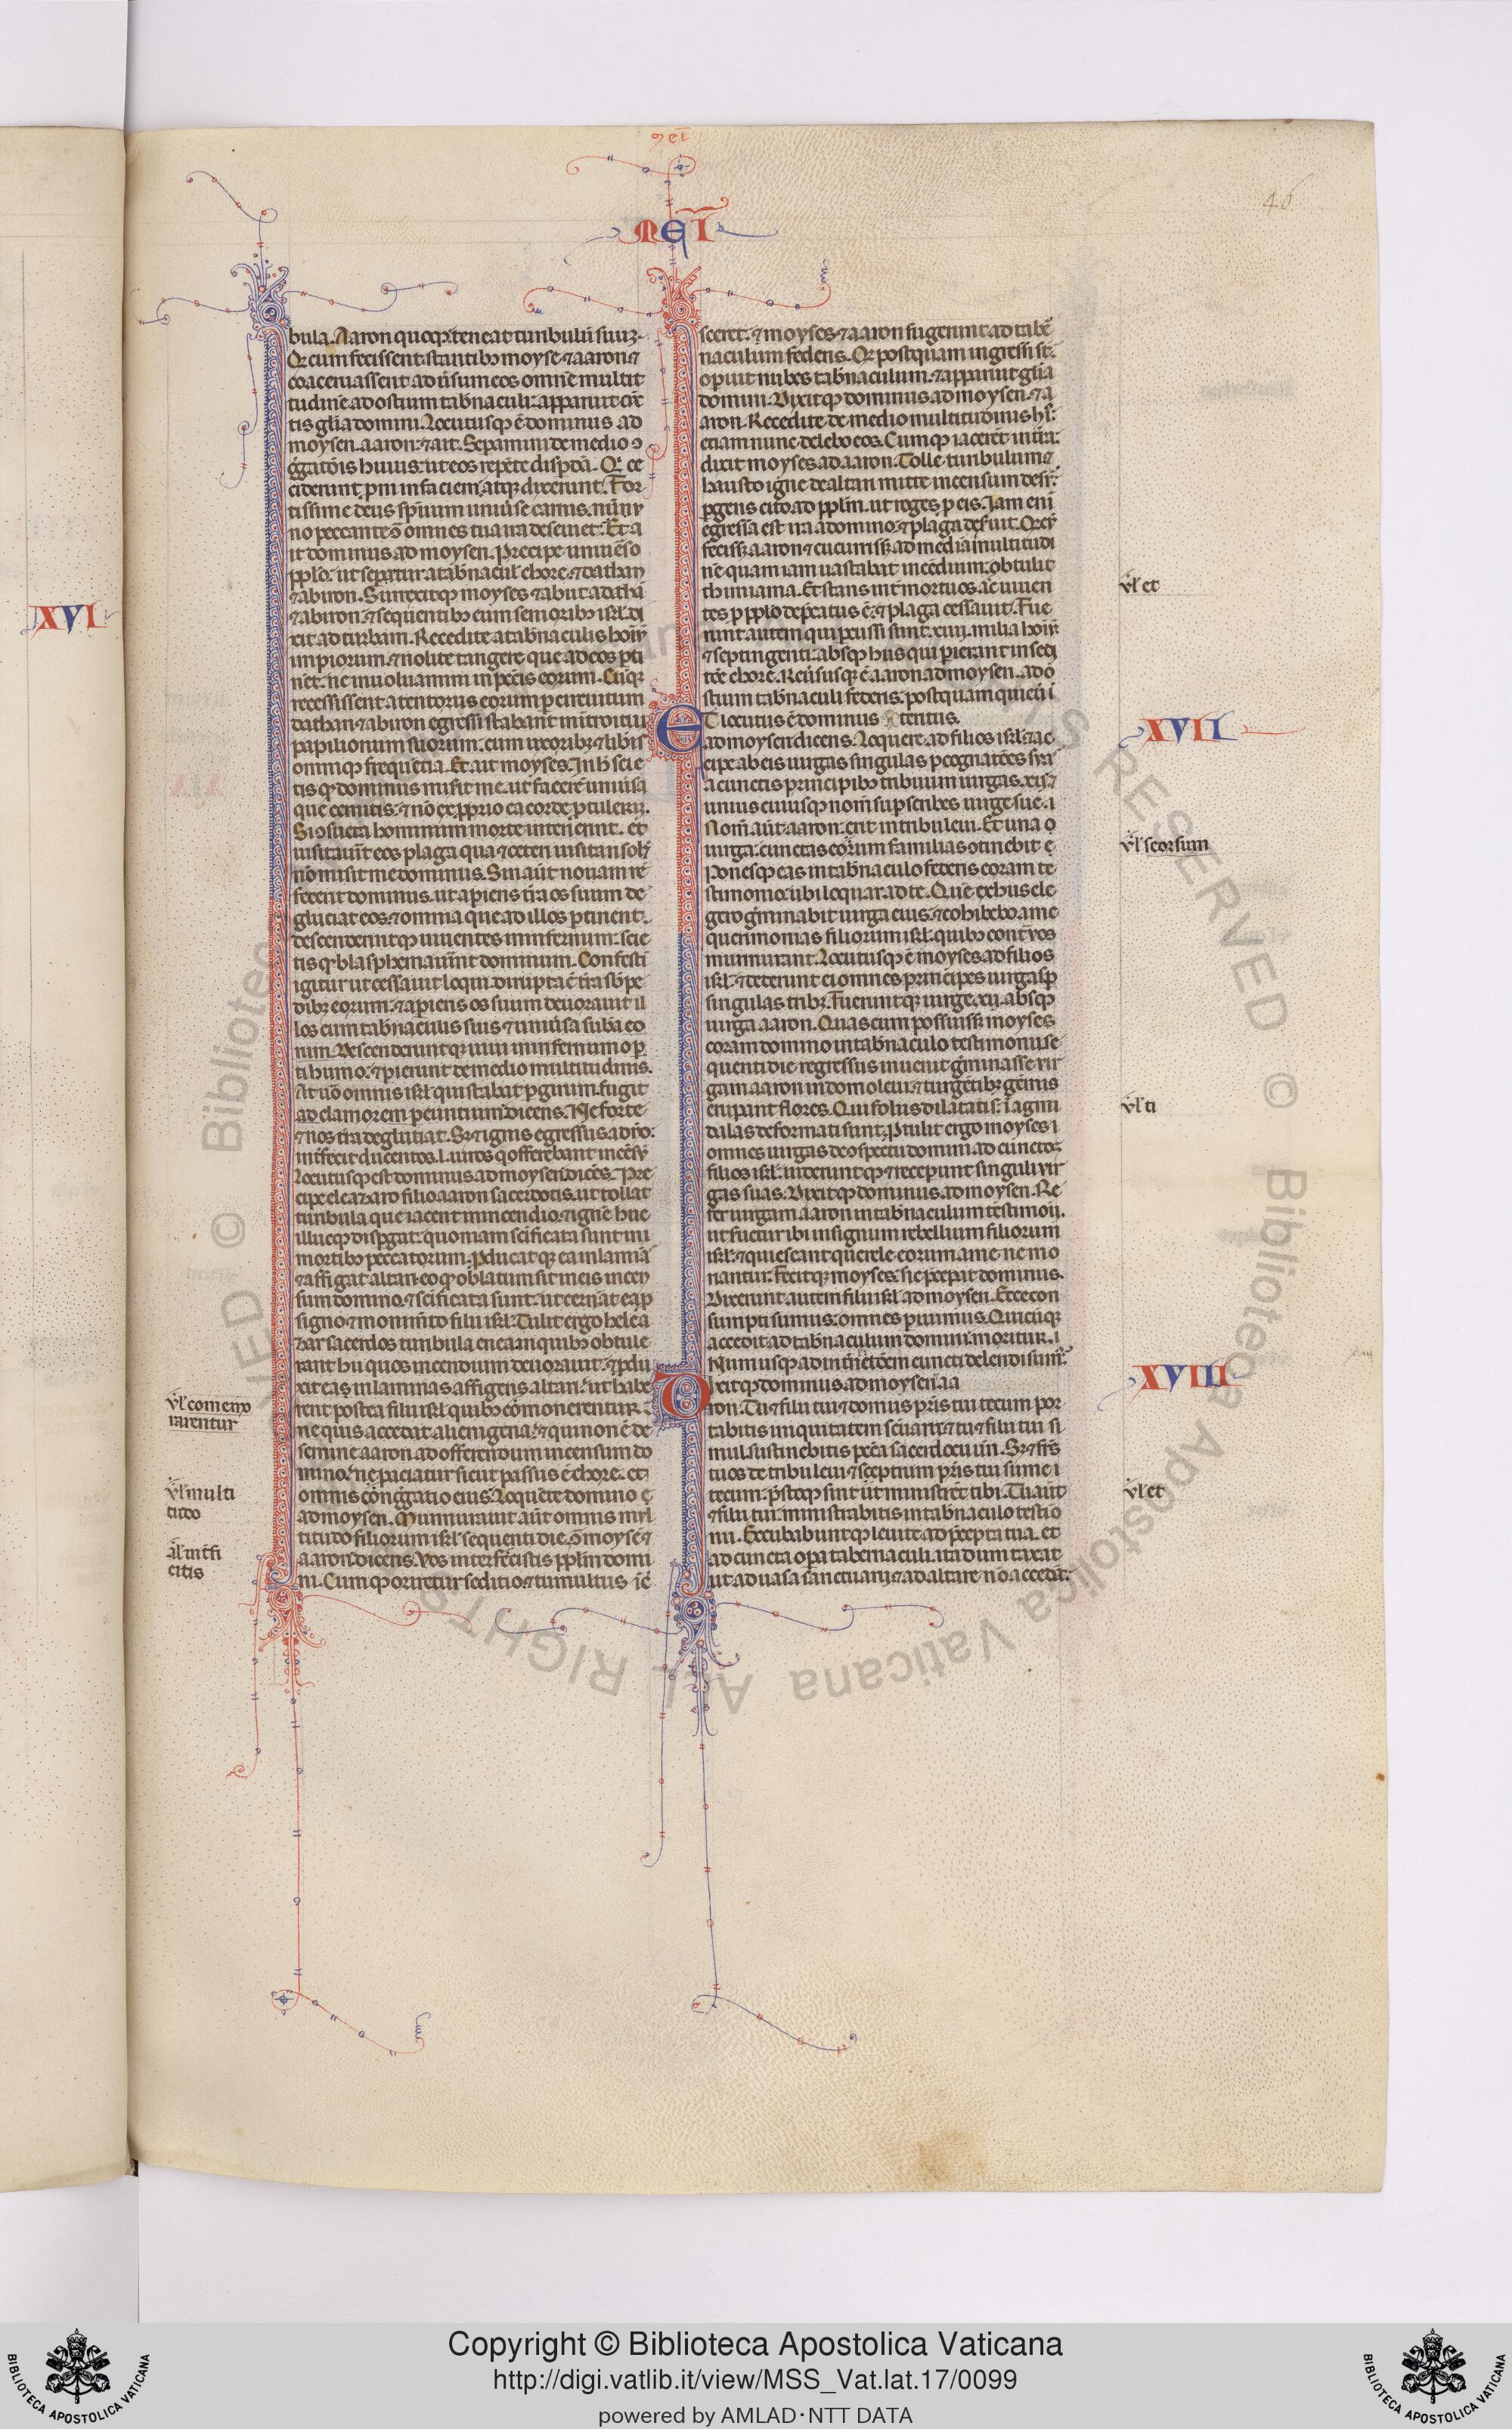 MERI
46
bula. Aaron quoq; teneat turibulū suuz.
Qđ cum fecissent stantibꝫ moyse ⁊ aaron ⁊
coaceruassent adūsum eos omnē multit
tudinē ad ostium tab̄naculi: apparuit cūc
tis gl̄ia domini. Locutusq; ē dominus ad
moysen. aaron. ⁊ ait. Separimini de medio ɔ
g̃gatōis huius: ut eos repēte disp̄dā. Qi ce
ciderunt p̄ni in faciem. atq; dixerunt. For
tissime deus spūum uniūse carnis. nū uny
no peccante ɔ̄ omnes tua ira deseuiet. Et a
it dominus ad moysen. Precipe uniūso
pp̄lo: ut sepaꝛetur a tab̄nacul̄ chore. ⁊ dathan
⁊ abiron. Surrexitq; moyses ⁊ abiit ad dathā
⁊ abiron. ⁊ sequentibꝫ eum senioribꝫ isrl̄. di
xit ad turbam. Recedite a tab̄naculis hoīuȝ
impiorum. ⁊ nolite tangere que ad eos p̱ti
nēt. ne inuoluamini in pcc̄is eorum. Cūq;
recessissent a tentoriis eorum p̱ circuitum
dathan ⁊ abiron egressi stabant in introitu
papilionum suorum: cum uxoribꝫ ⁊ lib̄is
omniq; frequētia. Et ait moyses. In hͦ scie
tis qđ dominus misit me. ut facerē uniūsa
que cernitis: ⁊ nō ex p̱prio ea corde p̱tulerim.
Si ɔsueta hominum morte interierint. et
uisitaūit eos plaga qua ⁊ ceteri uisitari solēt
nō misit me dominus. Sin aūt nouam rē
fecerit dominus. ut apiens tr̄a os suum de
glutiat eos. ⁊ omnia que ad illos p̱tinent.
descenderintq; uiuentes in infernum: scie
tis qđ blasphemauerint dominum. Confesti
igitur ut cessauit loqui. dirupta ē tr̄a sb̄ pe
dibꝫ eorum: ⁊ apiens os suum deuorauit il
los cum tab̄naculis suis ⁊ uniūsa suba eo
rum. Descenderuntq; uiui in infernum op̱
ti humo: ⁊ pierunt de medio multitudinis.
At uō omnis isrl̄ qui stabat p̱ girum. fugit
ad clamorem p̱euntium dicens. Ne forte
⁊ nos tr̄a deglutiat. Sꝫ ⁊ ignis egressus a dn̄o.
int̄fecit ducentos. l. uiros q̇ offerebant incēsū
Locutusq; est dominus ad moysen: dicēs. Pre
cipe eleazaro filio aaron sacerdotis. ut tollat
turibula que iacent in incendio. ⁊ ignē huc
illucq; disp̱gat: quoniam scīficata sunt in
mortibꝫ peccatorum. p̱ducatq; ea in laminā
⁊ affigat altari. eo qđ oblatum sit in eis incen
sum domino. ⁊ scīficata sunt: ut cernāt ea p̱
signo ⁊ monim̄to filii isrl̄. Tulit ergo helea
zar sacerdos turibula enea in quibꝫ obtule
rant hii quos incendium deuorauit. ⁊ p̱du
xit eas in laminas affigens altari: ut habe
rent postea filii isrl̄ quibꝫ cōmonerentur.
ne quis accedat alienigena. ⁊ qui non ē de
semine aaron ad offerendum incensum do
mino: ne paciatur sicut passus ē chore. et
omnis cōng̃gatio eius. Loquēte domino
ad moysen. Murmurauit aūt omnis mul
titudo filiorum isrl̄ sequenti die. ɔ̄ moysē ⁊
aaron. dicens. Vos interfecistis pp̄lm domi
ni. Cumq; oriretur seditio ⁊ tumultus īc̄
sceret. ⁊ moyses ⁊ aaron fugerunt ad tab̄
naculum federis. Qđ postquam ingressi st̄.
opuit nubes tab̄naculum. ⁊ apparuit gl̄ia
domini. Dixitq; dominus ad moysen. ⁊ a
aron. Recedite de medio multitudinis h̄s:
etiam nunc delebo eos. Cumq; iacerēt in tr̄a:
dixit moyses ad aaron. Tolle turibulum ⁊
hausto igne de altari mitte incensum desr̄:
p̱gens cito ad pp̄lm. ut roges p̱ eis. Iam eni
egressa est ira a domino. ⁊ plaga desēuit. Qđ cū
fecissꝫ aaron ⁊ cucurrissꝫ ad mediā multitudi
nē quam iam uastabat incēdium: obtulit
thimiama. Et stans int̄ mortuos ac uiuen
tes p̱ pp̄lo dep̄catus ē: ⁊ plaga cessauit. Fue
runt autem qui pcussi sunt. xiiij. milia hoīuȝ
⁊ septingenti. absq; hiis qui pierant in sedi
tōe chore. Reūsusq; ē aaron ad moysen. ad o
stium tab̄naculi federis: postquam quieuit in
ET locutus ē dominus teritus.
ad moysen dicens. Loquere ad filios isrl̄. ⁊ ac
cipe ab eis uirgas singulas p̱ cognatōes sua
a cunctis principibꝫ tribuum uirgas. xij. ⁊
unius cuiusq; nom̄ sup̱scribes uirge sue.
Nom̄ aūt aaron: erit in tribu leui. Et una
uirga: cunctas eorum familias ɔtinebit
Ponesq; eas in tab̄naculo federis coram te
stimonio: ubi loquar ad te. Quē ex hiis ele
gero g̃minabit uirga eius. ⁊ cohibebo a me
querimonias filiorum isrl̄. quibꝫ contͣ uos
murmurant. Locutusq; ē moyses ad filios
isrl̄. ⁊ dederunt ei omnes principes uirgas p̱
singulas tribꝫ. Fueruntq; uirge. xij. absq;
uirga aaron. Quas cum posuissꝫ moyses
coram domino in tab̄naculo testimonii: se
quenti die regressus inuenit g̃minasse uir
gam aaron in domo leui. ⁊ turgētibꝫ gēmis
erupant flores. Qui foliis dilatatis: ī amig
dalas deformati sunt. p̱tulit ergo moyses
omnes uirgas de ɔspectu domini ad cunctos
filios isrl̄. uideruntq; ⁊ receperunt singuli uir
gas suas. Dixitq; dominus. ad moysen. Re
fer uirgam aaron in tab̄naculum testimonij.
ut fuetur ibi in signum rebellium filiorum
isrl̄. ⁊ quiescant querele eorum a me ne mo
riantur. Fecitq; moyses: sic p̄cepat dominus.
Dixerunt autem filii isrl̄ ad moysen. Ecce con
sumpti sumus: omnes piuimus. Quicūq;
accedit ad tab̄naculum domini. moritur.
Num usq; ad int̄netōem cuncti delendi sum᷒
Dixitq; dominus ad moysen. aa
ron. Tu ⁊ filii tui ⁊ domus pr̄is tui tecum por
tabitis iniquitatem scūarij: ⁊ tu ⁊ filii tui si
mul. sustinebitis pcc̄a sacerdocii ūri. Sꝫ ⁊ frs̄
tuos de tribu leui ⁊ sceptrum pr̄is tui sume
tecum. p̄stoq; sint ut ministrēt tibi. Tu aūt
⁊ filii tui. ministrabitis in tab̄naculo testio
nii. Excubabuntq; leuite ad p̄cepta tua. et
ad cuncta opa tabernaculi. ita dum taxat
ut ad uasa sanctuarij ⁊ ad altare nō accedāt.
XVI
XVII
XVIII
ul̓ et
ul̓ seorsum
ul̓ ti
ul̓ et
ul̓ comemo
rarentur
ul̓ multi
tudo
al̓ int̄fi
citis
Copyright © Biblioteca Apostolica Vaticana
http://digi.vatlib.it/view/MSS_Vat.lat.17/0099
powered by AMLAD·NTT DATA
BIBLIOTECA APOSTOLICA VATICANA
BIBLIOTECA APOSTOLICA VATICANA